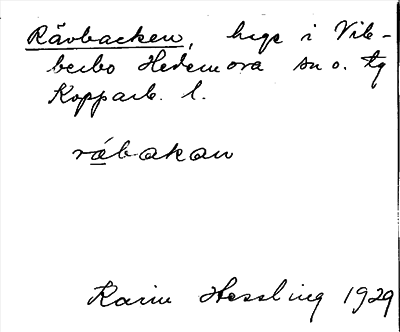 Rävbacken, hage i Vib-
berbo Hedemora sn o. tg
Kopparb. l.
räbakan
Karin Hessling 1929